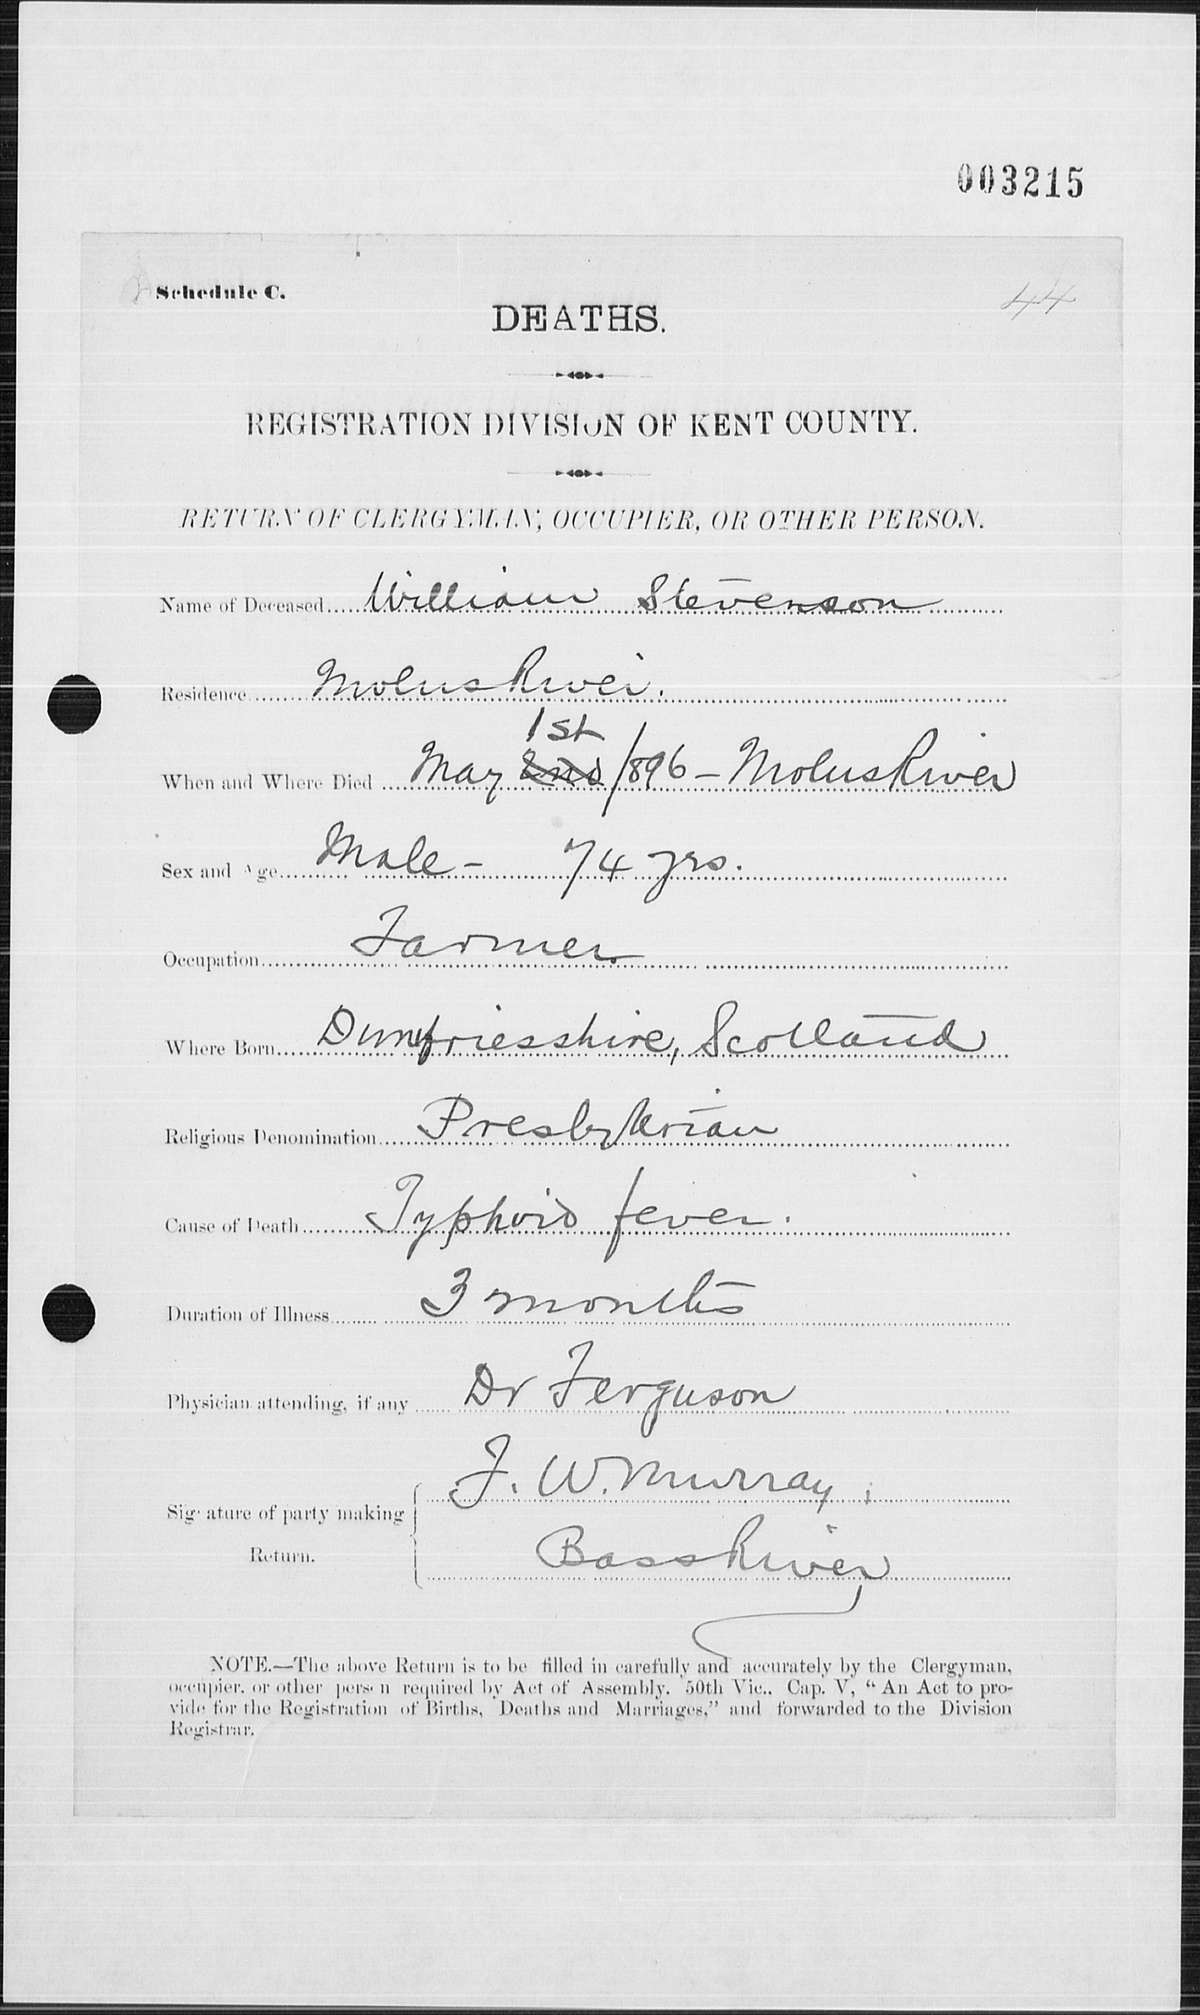 003215
Schedule C.
44
DEATHS.
REGISTRATION DIVISION OF KENT COUNTY.
RETURN OF CLERGYMAN, OCCUPIER, OR OTHER PERSON.
Name of Deceased William Stevenson
Residence Molus River.
1st
When and Where Died May 2nd /896 – Molus River
Sex and Age Male – 74 yrs.
Occupation Farmer.
Where Born Dumfriesshire, Scotland
Religious Denomination Presbyterian
Cause of Death Typhoid fever.
Duration of Illness 3 months
Physician attending, if any Dr Ferguson
Signature of party making F. W. Murray,
Return. Bass River
NOTE.—The above Return is to be filled in carefully and accurately by the Clergyman,
occupier, or other person required by Act of Assembly. 50th Vic., Cap. V, “ An Act to pro-
vide for the Registration of Births, Deaths and Marriages,” and forwarded to the Division
Registrar.